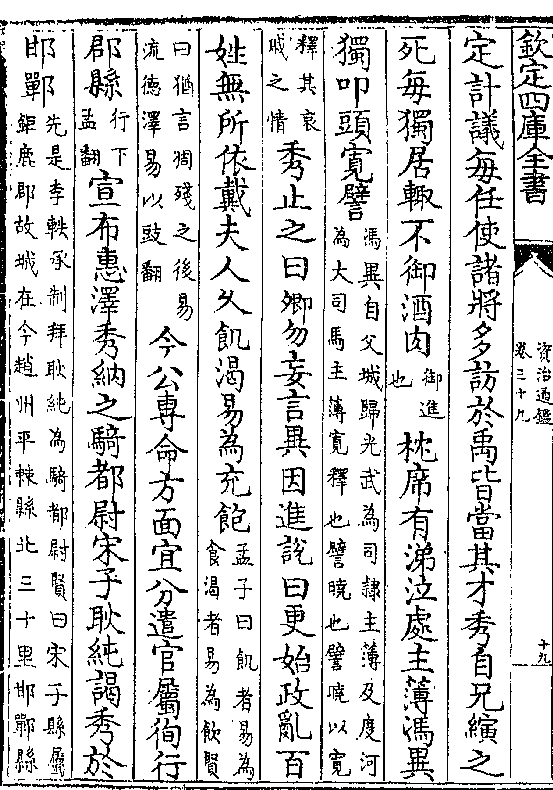 欽定四庫全書
資治通鑑
卷三十九
十九
定計議每任使諸將多訪於禹皆當其才秀自兄縯之
死每獨居輙不御酒肉御進也枕席有涕泣處主薄馮異
獨叩頭寛譬馮異自父城歸光武為司隷主薄及度河為大司馬主薄寛釋也譬曉也譬曉以寛
釋其哀戚之情秀止之曰卿勿妄言異因進說曰更始政亂百
姓無所依戴夫人久飢渴易為充飽孟子曰飢者易為食渴者易為飲賢
曰猶言凋殘之後易流德澤易以豉翻今公専命方面宜分遣官屬徇行
郡縣行下孟翻宣布惠澤秀納之騎都尉宋子耿純謁秀於
邯鄲先是李軼承制拜耿純為騎都尉賢曰宋子縣屬鉅鹿郡故城在今趙州平棘縣北三十里邯鄲縣